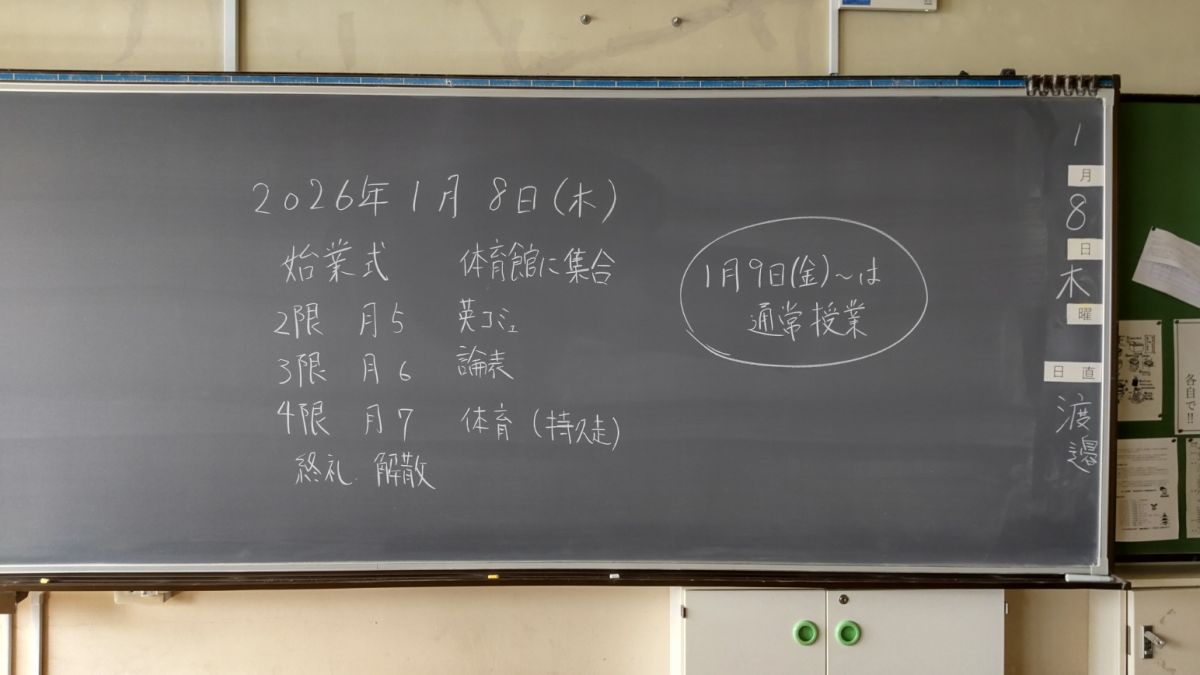 2026年1月8日(木)
始業式 体育館に集合
2限 月5 英コミュ
3限 月6 論表
4限 月7 体育 (持久走)
終礼 解散
1月9日(金)~は
通常授業
1
月
8
日
木
曜
日直
渡邊
各自で!!